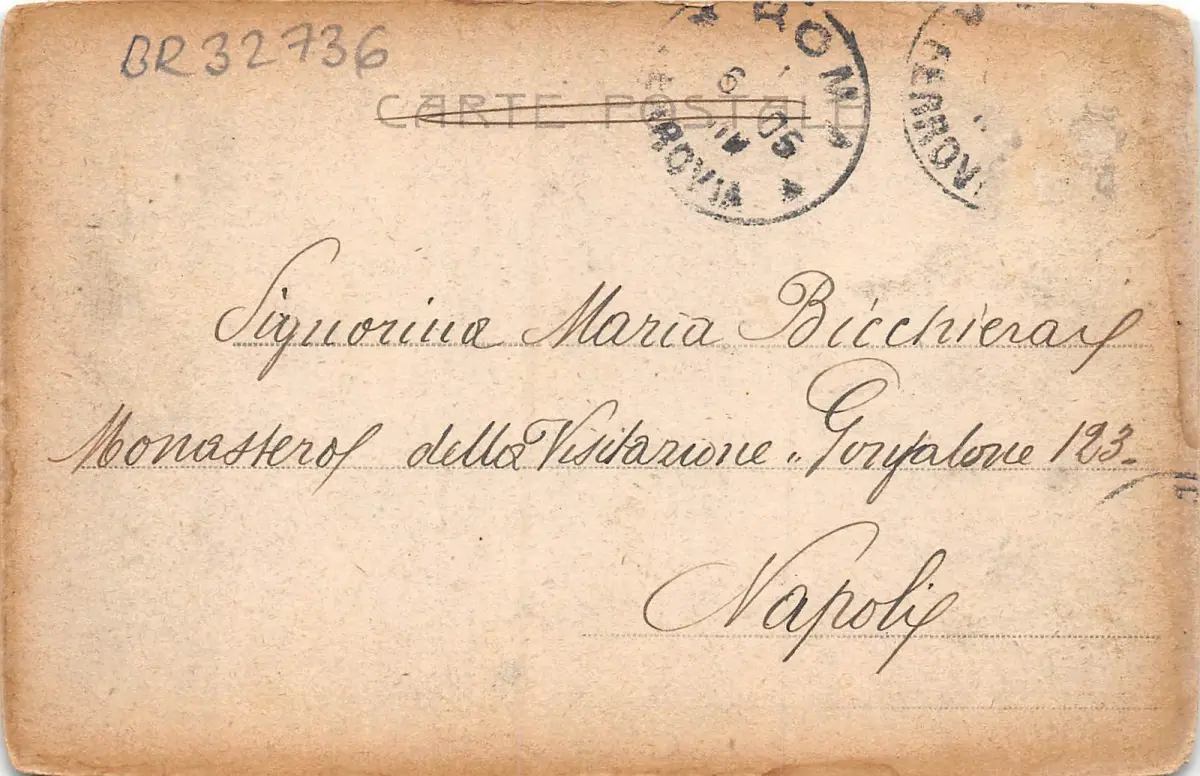 BR32736
CARTE POSTALE
ROMA
6 05
FERROVIA
FERROVIA
Signorina Maria Bicchierai
Monastero della Visitazione. Gonfalone 123.
Napoli